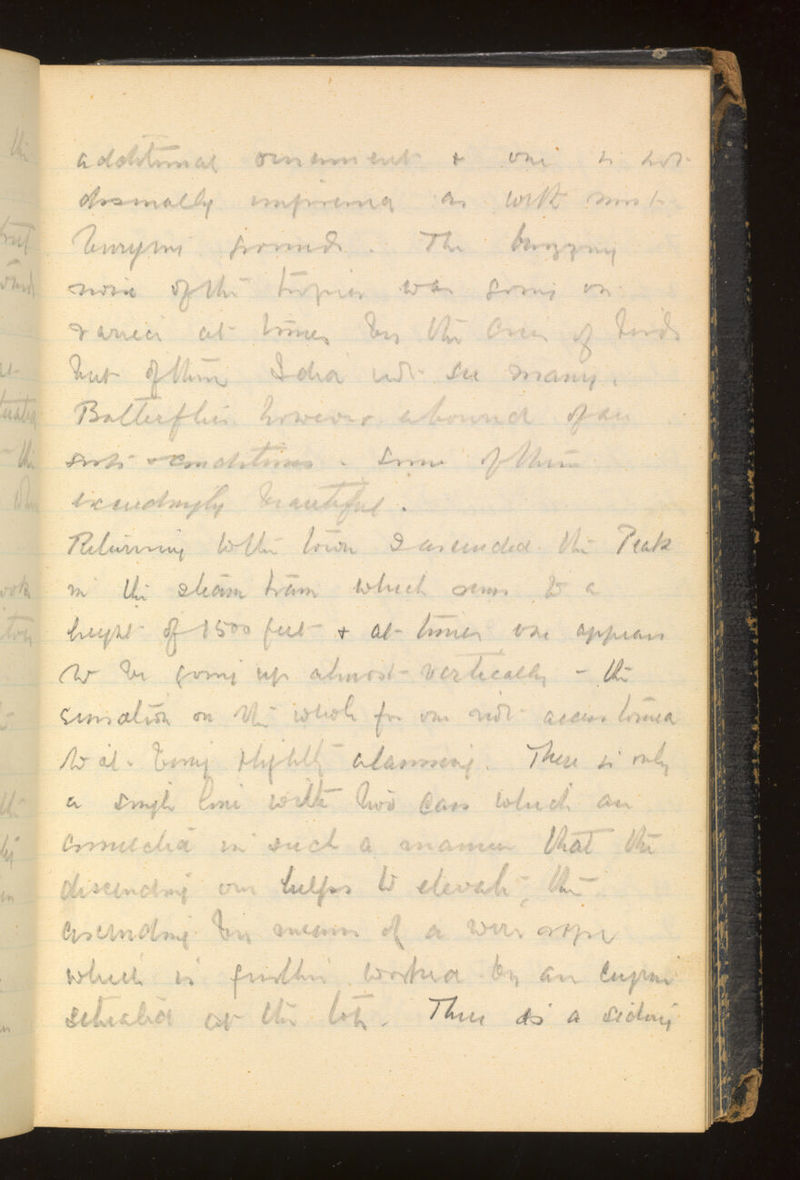 additional ornament & one is not
dismally impressed as with most
burying grounds. The buzzing
noise of the tropics was going on
varied at times by the cries of birds
but of them I did not see many.
Butterflies however abound of all
sorts & conditions. Some of them
exceedingly beautiful.
Returning to the town I ascended the Peak
in the steam tram which runs to a
height of 1500 feet & at times one appears
to be going up almost vertically – the
sensation on the whole for one not accustomed
to it being slightly alarming. There is only
a single line with two cars which are
connected in such a manner that the
descending one helps to elevate the
ascending by means of a wire rope
which is further worked by an engine
situated at the top. There is a siding